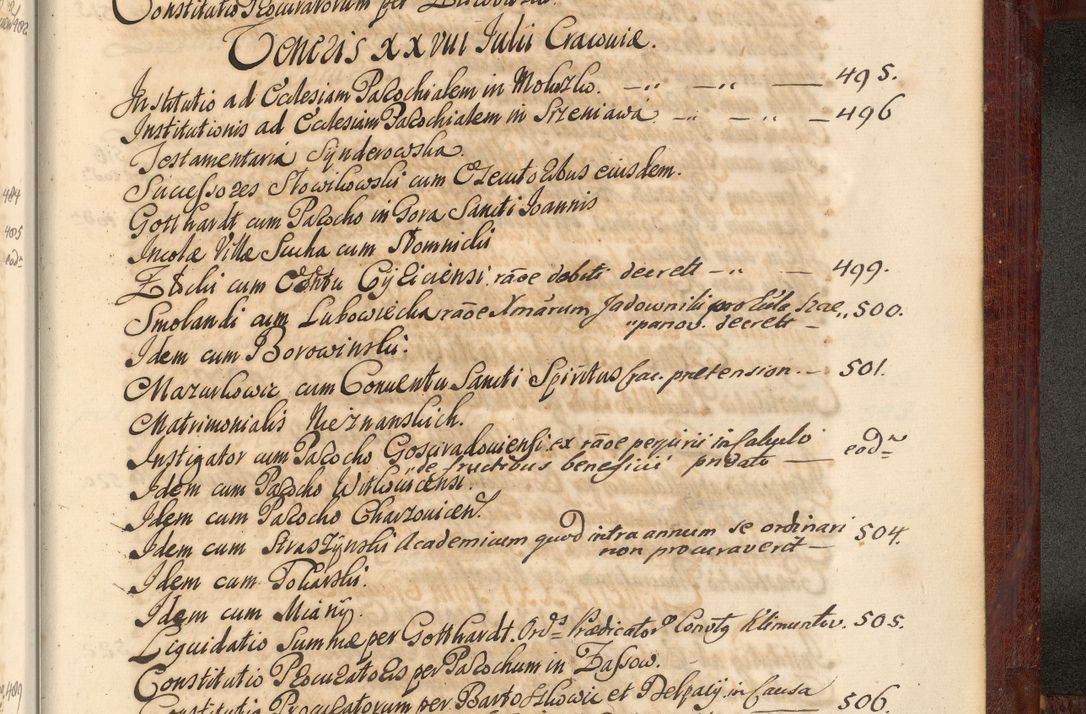 Constitutio Procuratorum per
Veneris XXVIII Julii Cracoviæ.
Institutio ad Ecclesiam Parochialem in Mokrzko. 495.
Institutionis ad Ecclesiam Parochialem in Srzeniawa 496
Testamentaria Synderowska.
Successores Słowikowski cum Executoribus eiusdem.
Gotthardt cum Parocho in Gora Sancti Joannis
Incolæ Villæ Sucha cum Słomnicki
cum Cœtu rãoe debiti decreti 499.
Smolandi cum Lubowiecka rãoe Xmãrum Jadowniki pro 500.
decreti
Idem cum Borowinski.
Mazurkowic cum Conventu Sancti Spiritus pretension. 501.
Matrimonialis Nieznanskich.
Instigator cum Parocho ex rãoe perjurii in calculo eod~
de fructibus beneficii
Idem cum Parocho
Idem cum Parocho
Idem cum Straszynski Academicum quod intra annum se ordinari 504.
non procuraverit
Idem cum Tokarski.
Idem cum
Liquidatio Summæ per Gotthardt. Ord~s Prædicator~ Convtg Klimuntov. 505.
Constitutio Procuratoris per Parochum in Zassow.
Constitutio Procuratorum per et in Causa 506.
484
485
eod~
489